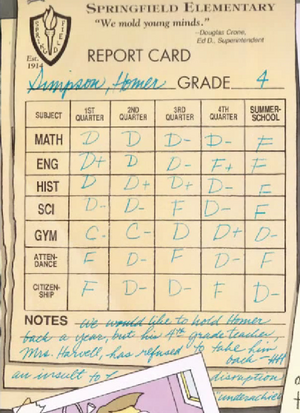 SPRINGFIELD ELEMENTARY
"We mold young minds."
-Douglas Crone,
Ed D., Superintendent
Est.
1914
REPORT CARD
Simpson, Homer GRADE 4
SUBJECT 1ST QUARTER 2ND QUARTER 3RD QUARTER 4TH QUARTER SUMMER-SCHOOL
MATH D D D- D- F
ENG D+ D D- F+ F
HIST D D+ D+ D- F
SCI D- D- F D- F
GYM C C- D D+ D-
ATTEN-DANCE F D- F D- F
CITIZEN-SHIP F D- D- F D-
NOTES We would like to hold Homer
back a year, but his 4th grade teacher,
Mrs. Harvett, has refused to take him
back -HH
an insult to
disruption
underachie